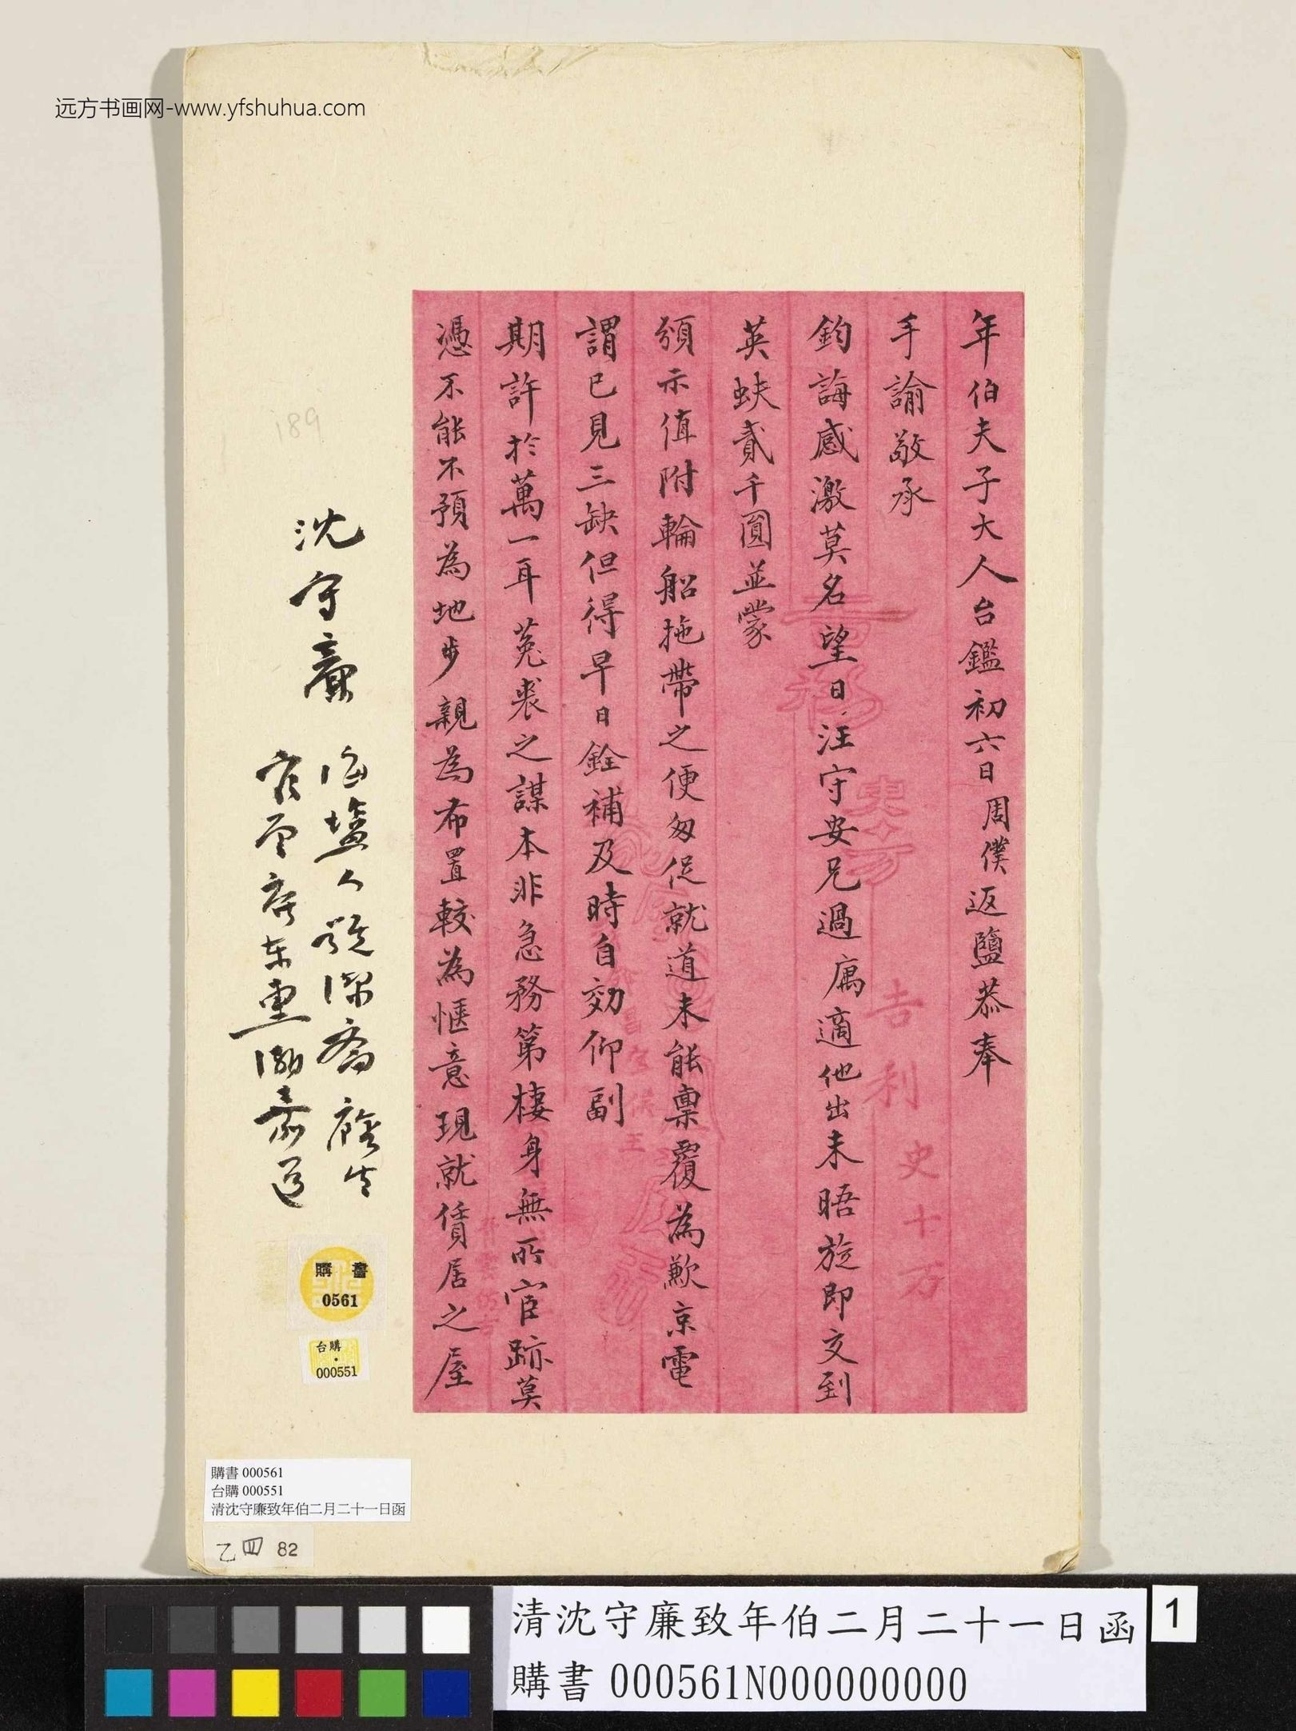 远方书画网-www.yfshuhua.com
年伯夫子大人台鑑初六日周僕返鹽恭奉
手諭敬承
鈞誨感激莫名望日汪守安兄過寓適他出未晤旋即交到
英蚨貳千圓並蒙
頒示值附輪船拖帶之便匆促就道未能稟覆為歉京電
謂已見三缺但得早日銓補及時自効仰副
期許於萬一耳菟裘之謀本非急務第棲身無所宦跡莫
憑不能不預為地步親為布置較為愜意現就賃居之屋
沈守廉
海鹽人號潔齋廕生
官至河南
189
購書
0561
台購
000551
購書 000561
台購 000551
清沈守廉致年伯二月二十一日函
乙四 82
清沈守廉致年伯二月二十一日函
購書 000561N000000000
1